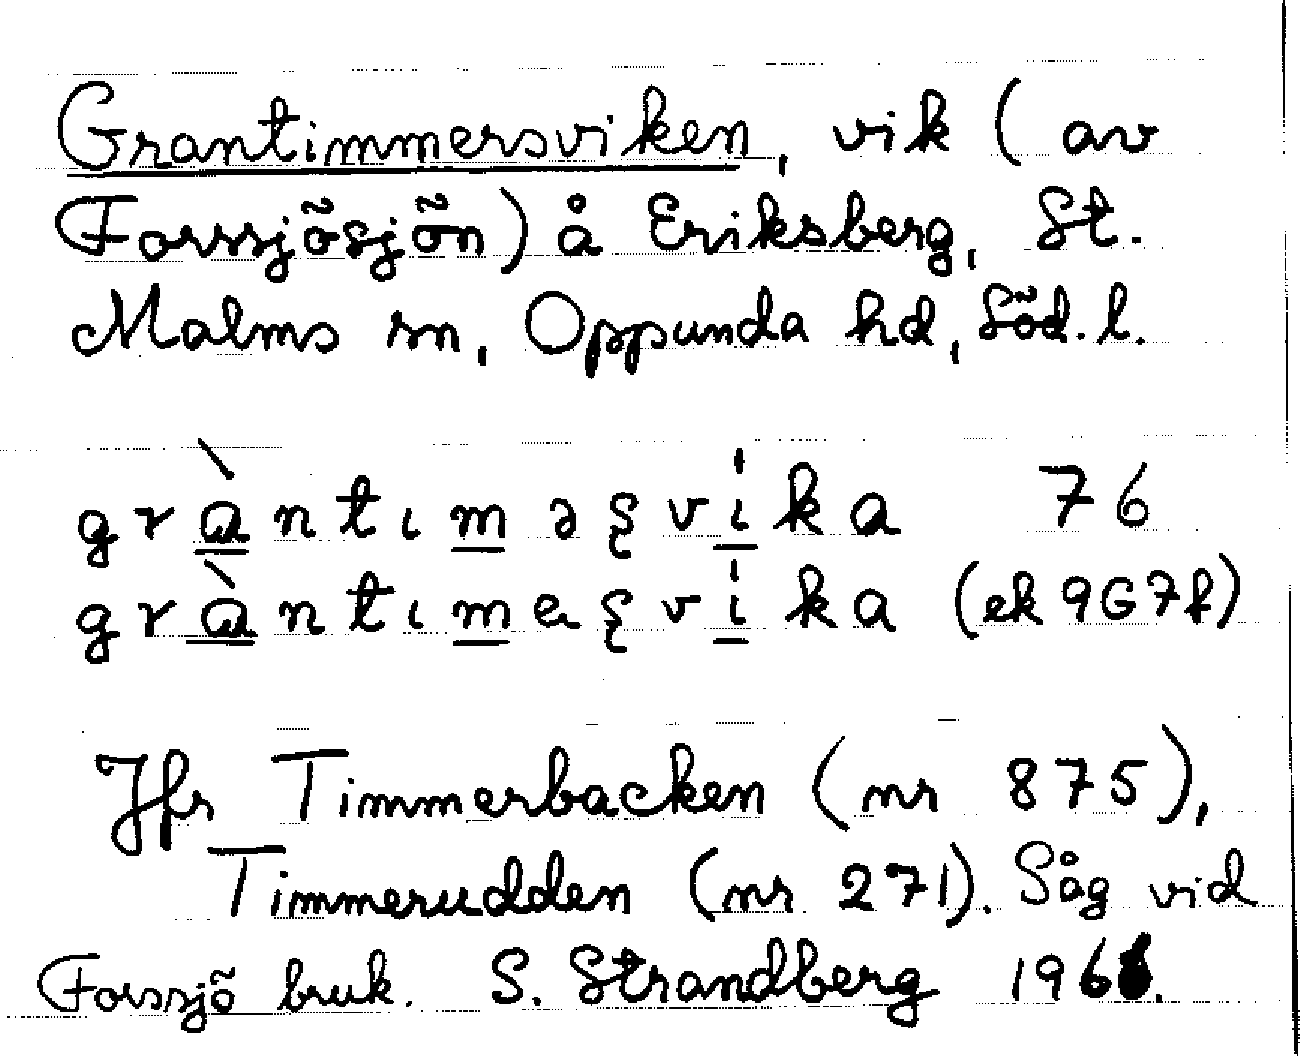 Grantimmersviken, vik (av
Forssjösjön) å Eriksberg, St.
Malms sn, Oppunda hd, Söd. l.
gràntıməʂvíka 76
gràntımeʂvíka (ek 967f)
Jfr Timmerbacken (nr 875),
Timmerudden (nr 271). Såg vid
Forssjö bruk. S. Strandberg